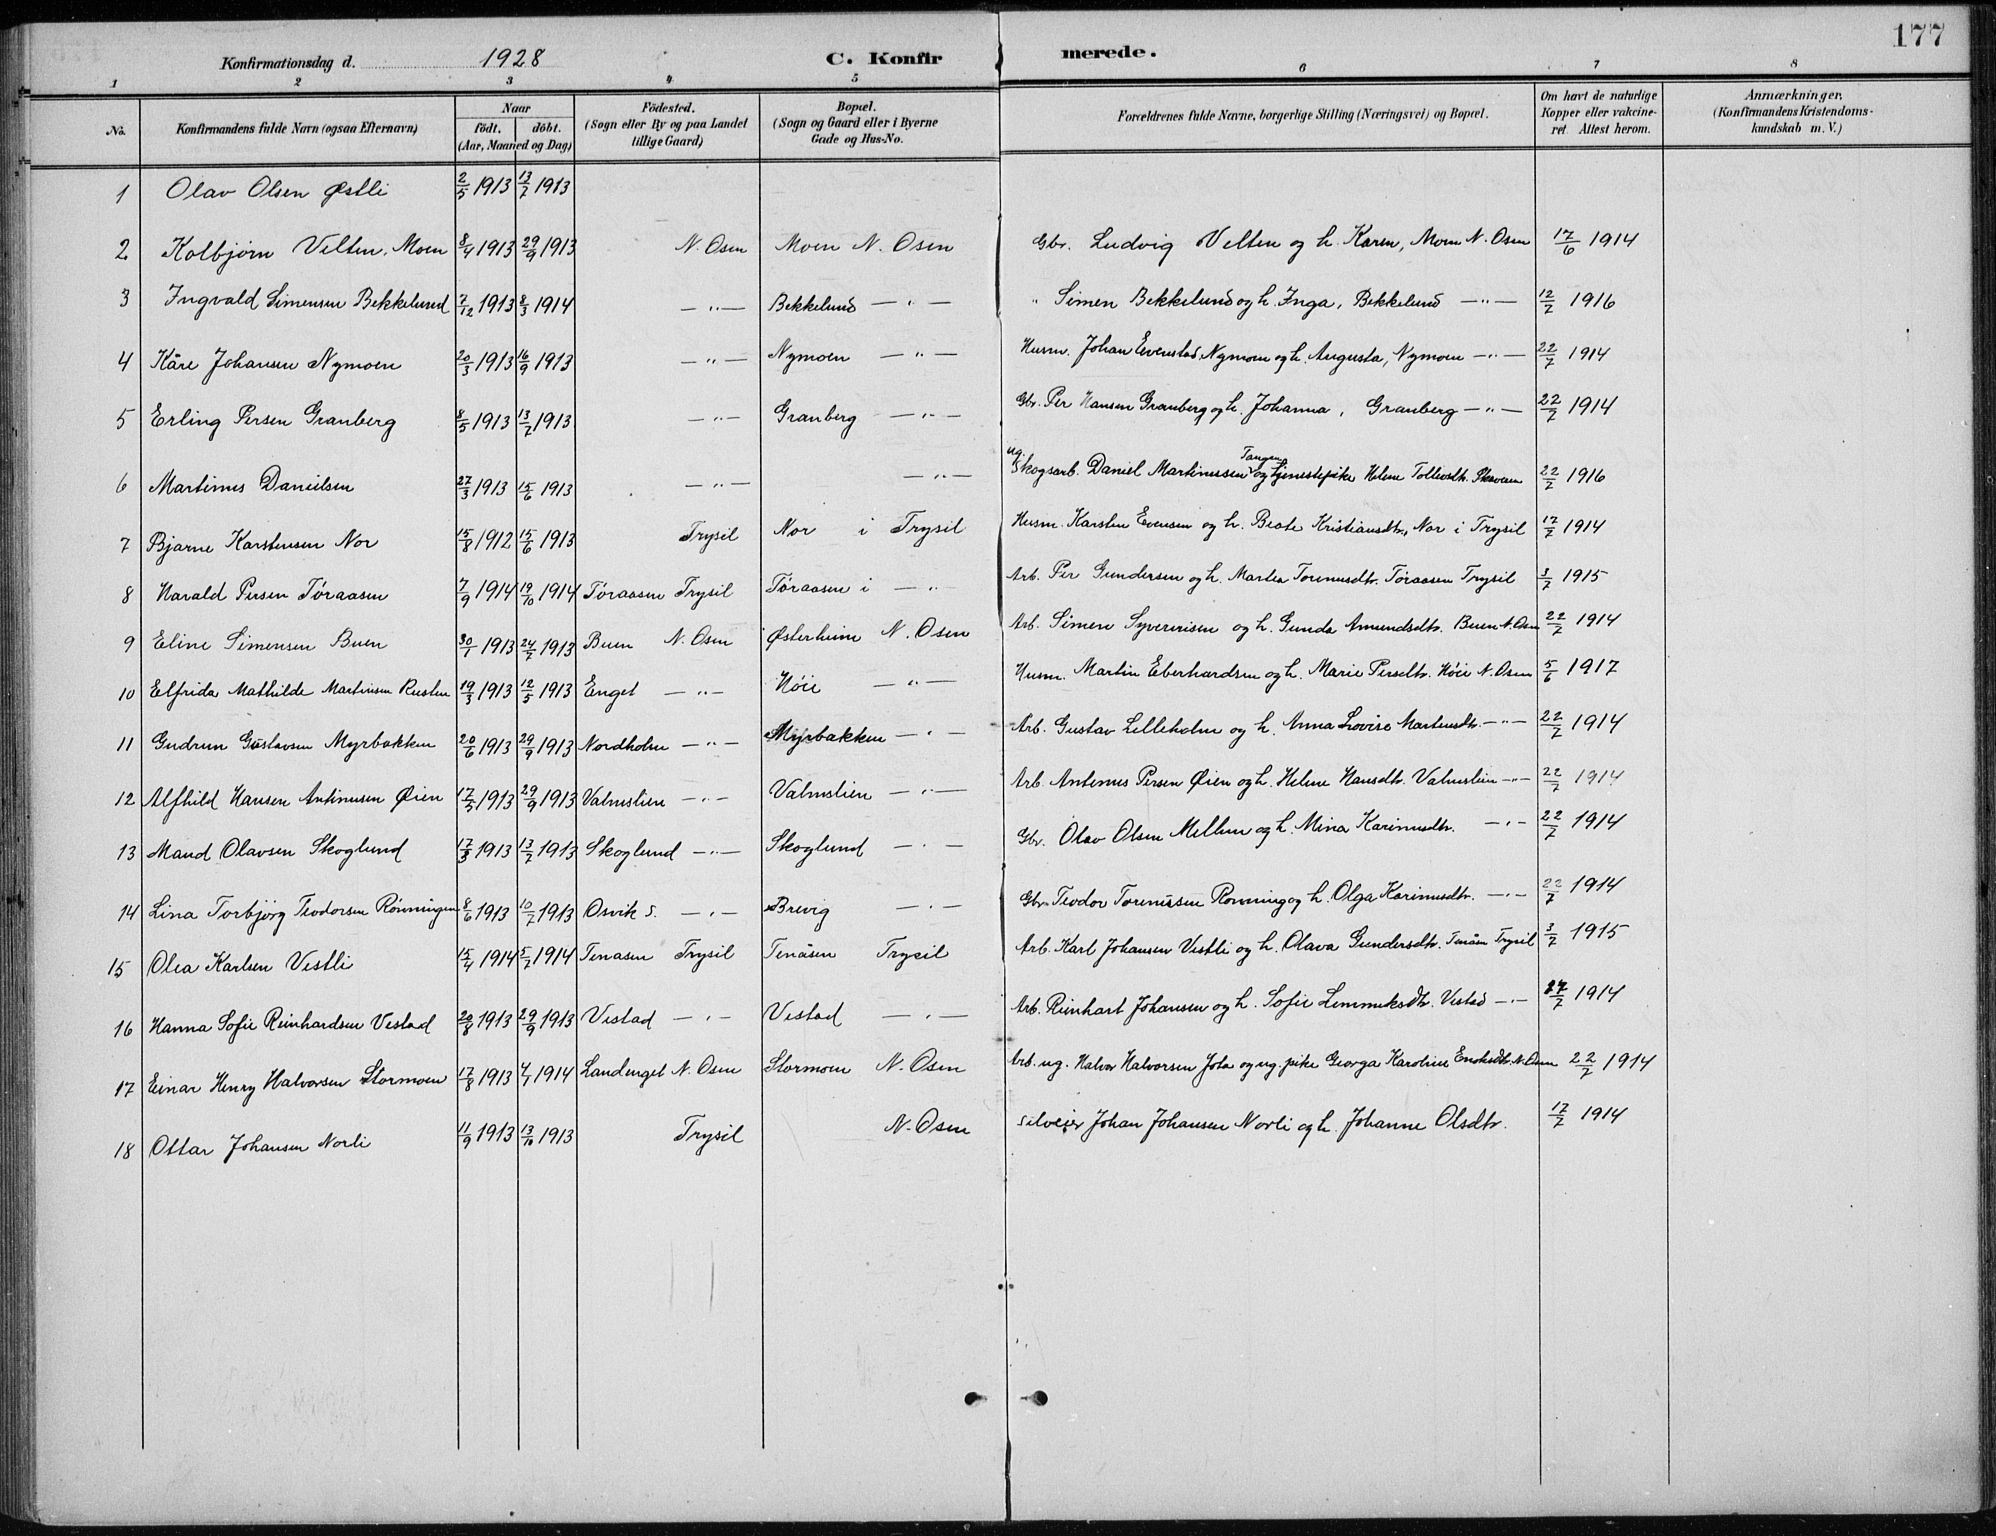 177
Konfirmationsdag d. 1928 C. Konfirmerede.
1 2 3 4 5 6 7 8
No. Konfirmandens fulde Navn (ogsaa Efternavn) Naar födt. döbt. (Aar, Maaned og Dag) Födested. (Sogn eller By og paa Landet tillige Gaard) Bopæl. (Sogn og Gaard eller i Byerne Gade og Hus-No. Forældrenes fulde Navne, borgerlige Stilling (Næringsvei) og Bopæl. Om havt de naturlige Kopper eller vakcineret. Attest herom. Anmærkninger. (Konfirmandens Kristendomskundskab m. V.)
1 Olav Olsen Østli 2/5 1913 13/7 1913
2 Kolbjørn Velten, Moen 8/4 1913 29/9 1913 N. Osen Moen N. Osen Gbr. Ludvig Velten og h. Karen, Moen N. Osen 17/6 1914
3 Ingvald Simensen Bekkelund 7/12 1913 8/3 1914 —"— Bekkelund —"— " Simen Bekkelund og h. Inga, Bekkelund —"— 12/7 1916
4 Kåre Johansen Nymoen 20/3 1913 16/9 1913 —"— Nymoen —"— Husm. Johan Evenstad, Nymoen og h. Augusta, Nymoen —"— 22/7 1914
5 Erling Persen Granberg 8/5 1913 13/7 1913 —"— Granberg —"— Gbr. Per Hansen Granberg og h. Johanna, Granberg —"— 22/7 1914
6 Martinus Danielsen 27/3 1913 15/6 1913 —"— —"— ug. Skogsarb. Daniel Martinussen Tangen og tjenestepike Helene Tollevsdtr. 22/7 1916
7 Bjarne Karstensen Nor 15/8 1912 15/6 1913 Trysil Nor i Trysil Husm. Karsten Evensen og h. Beate Kristiansdtr., Nor i Trysil 17/7 1914
8 Harald Persen Töraasen 7/9 1914 19/10 1914 Töraasen Trysil Töraasen i —" Arb. Per Gundersen og h. Martea Torenusdtr. Töraasen Trysil 3/7 1915
9 Eline Simensen Buen 30/1 1913 24/7 1913 Buen N. Osen Østerheim N. Osen Arb. Simen Syverinsen og h. Gunda Amundsdtr. Buen N. Osen 22/7 1914
10 Elfrida Mathilde Martinsen Rusten 19/3 1913 12/5 1913 Enget —"— Höie —"— Husm. Martin Eberhardsen og h. Marie Persdtr. Höie N. Osen 5/6 1917
11 Gudrun Gustavsen Myrbakken 20/6 1913 29/9 1913 Nordholm —"— Myrbakken —"— Arb. Gustav Lilleholm og h. Anna Lovise Martensdtr. —"— 22/7 1914
12 Alfhild Hansen Antinusen Øien 17/5 1913 29/9 1913 Valmslien —"— Valmslien —"— Arb. Antenus Persen Øien og h. Helene Hansdtr. Valmslien —"— 22/7 1914
13 Maud Olavsen Skoglund 17/3 1913 13/7 1913 Skoglund —"— Skoglund —"— Gbr. Olav Olsen Mellem og h. Mina Karinusdtr. —"— 22/7 1914
14 Lina Torbjörg Teodorsen Rönningen 8/6 1913 10/7 1913 Osvik S. —"— Brevig —"— Gbr. Teodor Torenissen Rønning og h. Olga Karinusdtr. —"— 22/7 1914
15 Olea Karlsen Vestli 15/4 1914 5/7 1914 Tenasen Trysil Tenåsen Trysil Arb. Karl Johansen Vestli og h. Olava Gundersdtr. Tenåsen Trysil 3/7 1915
16 Hanna Sofie Reinhardsen Vestad 20/8 1913 29/9 1913 Vestad —"— Vestad —"— Arb. Reinhart Johansen og h. Sofie Lemmiksdtr. Vestad —"— 27/7 1914
17 Einar Henry Halvorsen Stormoen 17/8 1913 4/1 1914 Landenget N. Osen Stormoen N. Osen Arb. ug. Halvor Halvorsen Jota og ug. pike Georga Karoline N. Osen 22/7 1914
18 Ottar Johansen Norli 11/9 1913 13/10 1913 Trysil N. Osen Selveier Johan Johansen Norli og h. Johanne Olsdtr. 17/7 1914